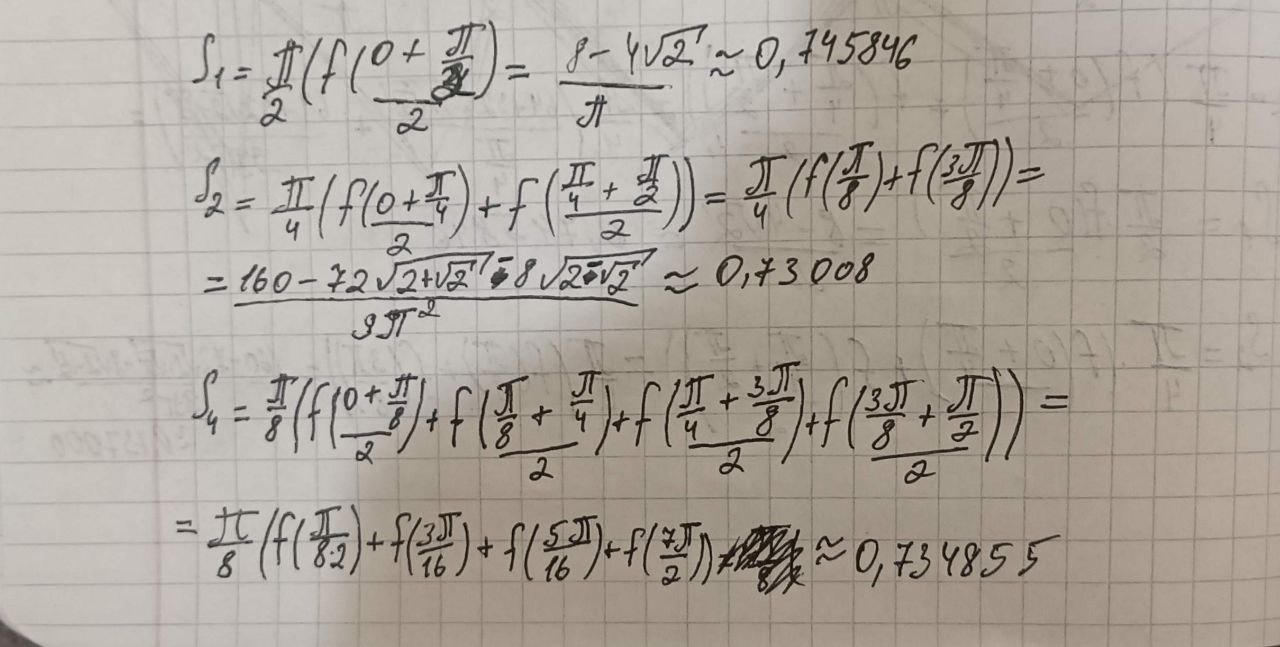 S₁ = π/2 (f((0 + π/2)/2) = (8 - 4√2)/π ≈ 0,745846
S₂ = π/4 (f((0 + π/4)/2) + f((π/4 + π/2)/2)) = π/4 (f(π/8) + f(3π/8)) =
= (160 - 72√(2+√2) - 8√(2-√2))/(9π²) ≈ 0,73008
S₄ = π/8 (f((0 + π/8)/2) + f((π/8 + π/4)/2) + f((π/4 + 3π/8)/2) + f((3π/8 + π/2)/2)) =
= π/8 (f(π/(8·2)) + f(3π/16) + f(5π/16) + f(7π/2)) ≈ 0,734855